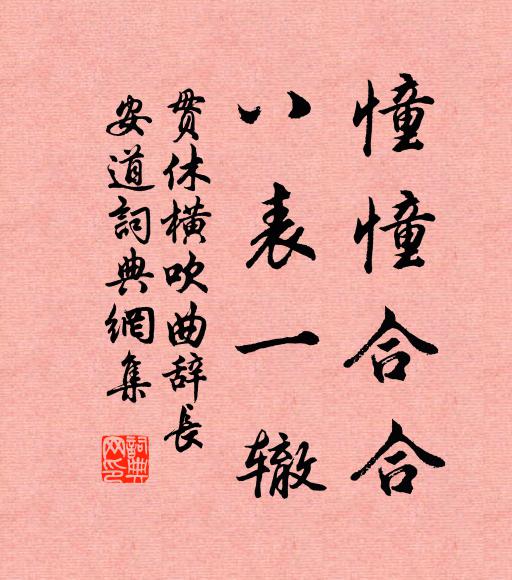 憧憧合合
八表一辙
贯休横吹曲辞长
安道詞典網集
詞典网印